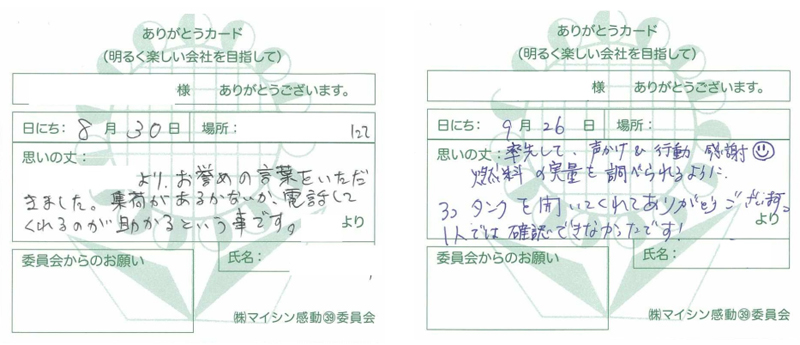 ありがとうカード
(明るく楽しい会社を目指して)
様 ありがとうございます。
日にち: 8 月 30 日 場所:
思いの丈:
より、お誉めの言葉をいただ
きました。集荷があるかないか、電話して
くれるのが助かるという事です。
より
委員会からのお願い
氏名:
㈱マイシン感動㊴委員会
ありがとうカード
(明るく楽しい会社を目指して)
様 ありがとうございます。
日にち: 9 月 26 日 場所:
思いの丈: 率先して、声かけ&行動 感謝
燃料の実量を調べられるように、
3つタンクを開いてくれてありがとうございました。
より
1人では確認できなかったです!
委員会からのお願い
氏名:
㈱マイシン感動㊴委員会